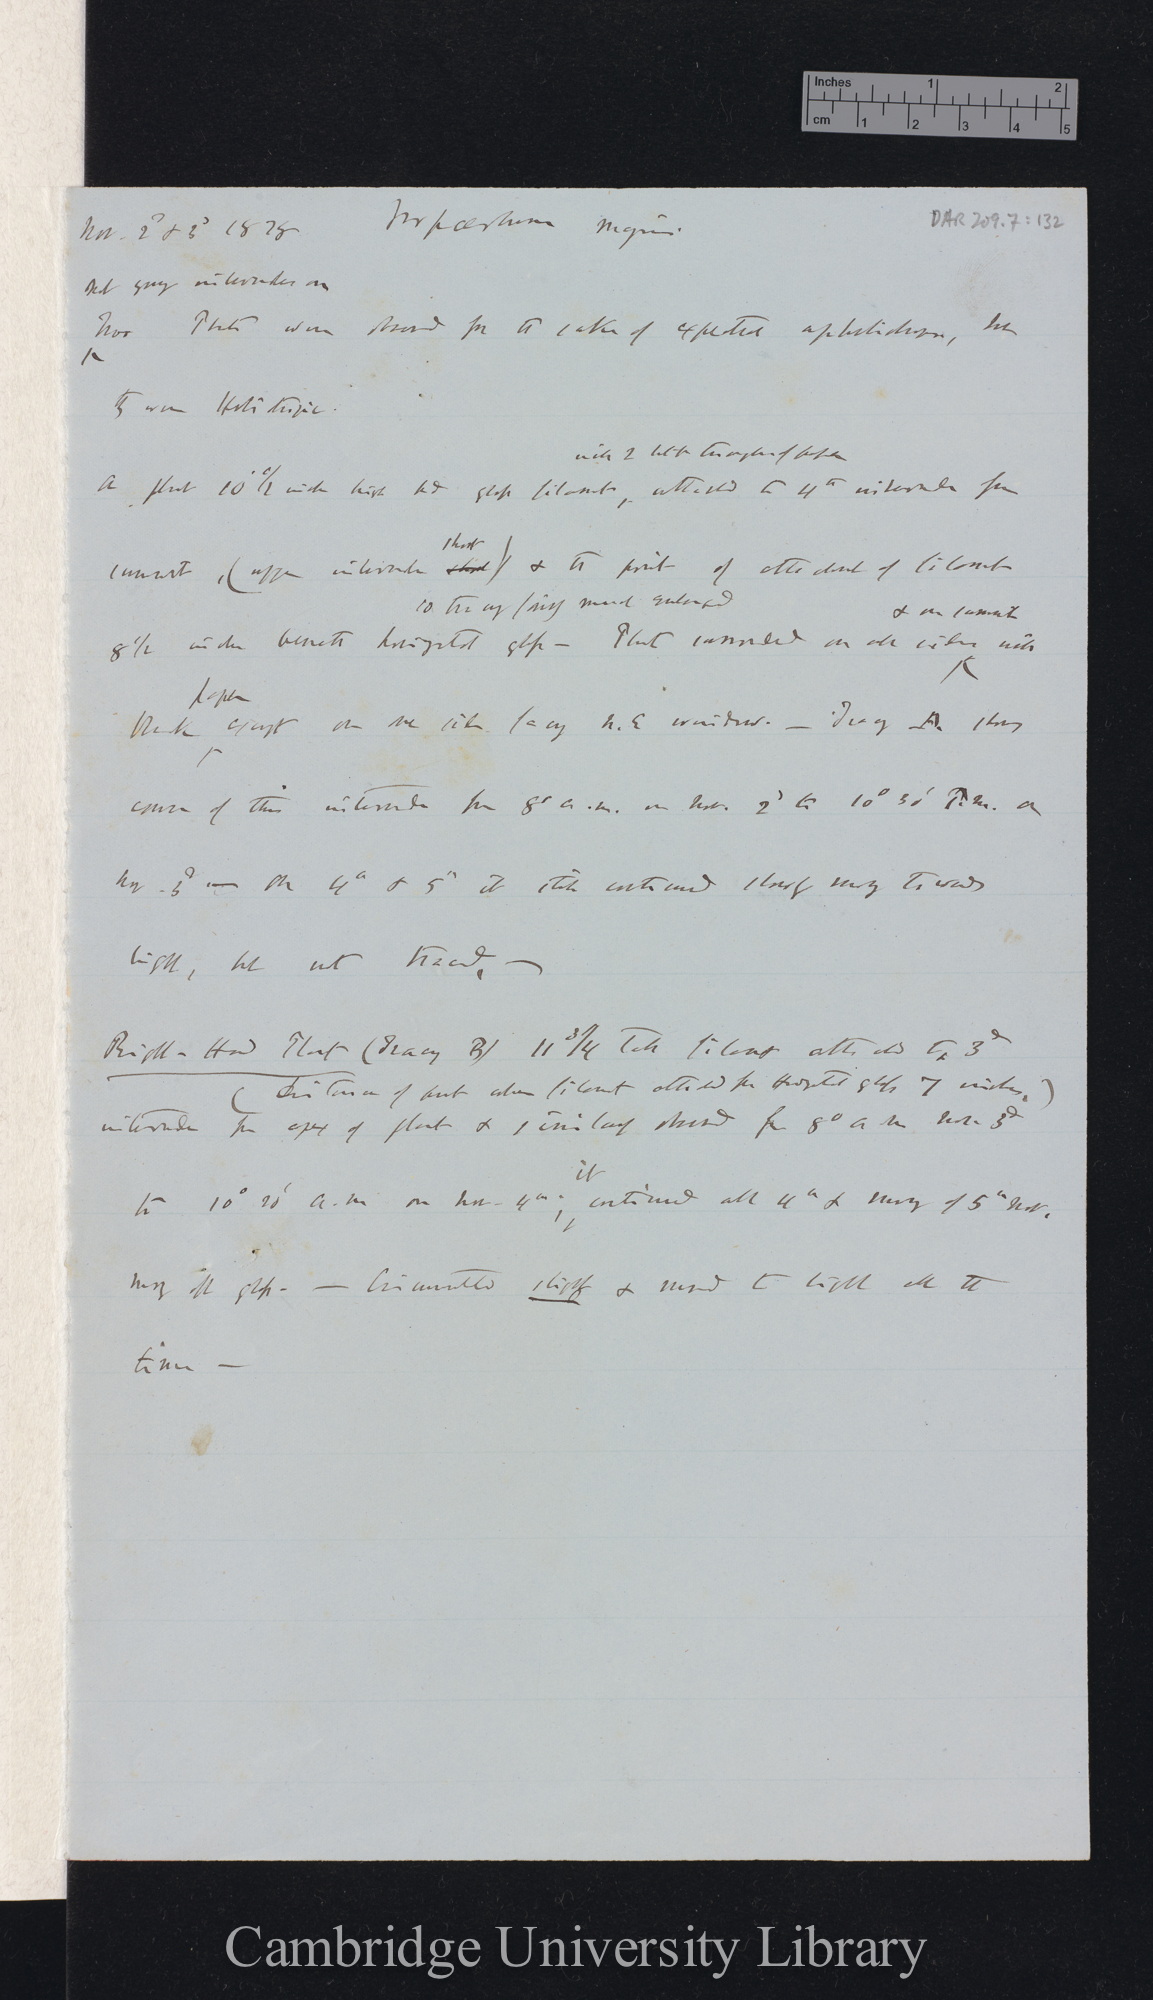 Inches 1 2
cm 1 2 3 4 5
DAR 209.7:132
Nov. 2d & 3d 1878 Tropaeolum majus.
internodes on
Plants were observed for the sake of expected apheliotropism, but
they were Heliotropic.
with 2 little triangles of paper
A plant 10 1/2 inch high had glass filament, attached to 4th internode from
short
summit, (upper internode short) & the point of attachment of filament
so tracing much enlarged & on summit
8 1/2 inches beneath horizontal glass — Plant surrounded on all sides with
paper
black except on one side facing N.E window. — Tracing A. shows
course of this internode from 8° a.m. on Nov. 2d to 10° 30' a.m. on
Nov. 3d — On 4th & 5th it still continued slowly moving towards
light, but not traced. —
Right-Hand Plant (Tracing B) 11 3/4 tall filament attached to 3d
(Distance of point where filament attached from Horizontal glass 7 inches.)
internode from apex of plant & similarly observed from 8° a.m Nov. 3d
it
to 10° 20' a.m on Nov. 4th; continued all 4th & morning of 5th Nov.
moving off glass. — Circumnutated slightly & moved to light all the
time —
Cambridge University Library